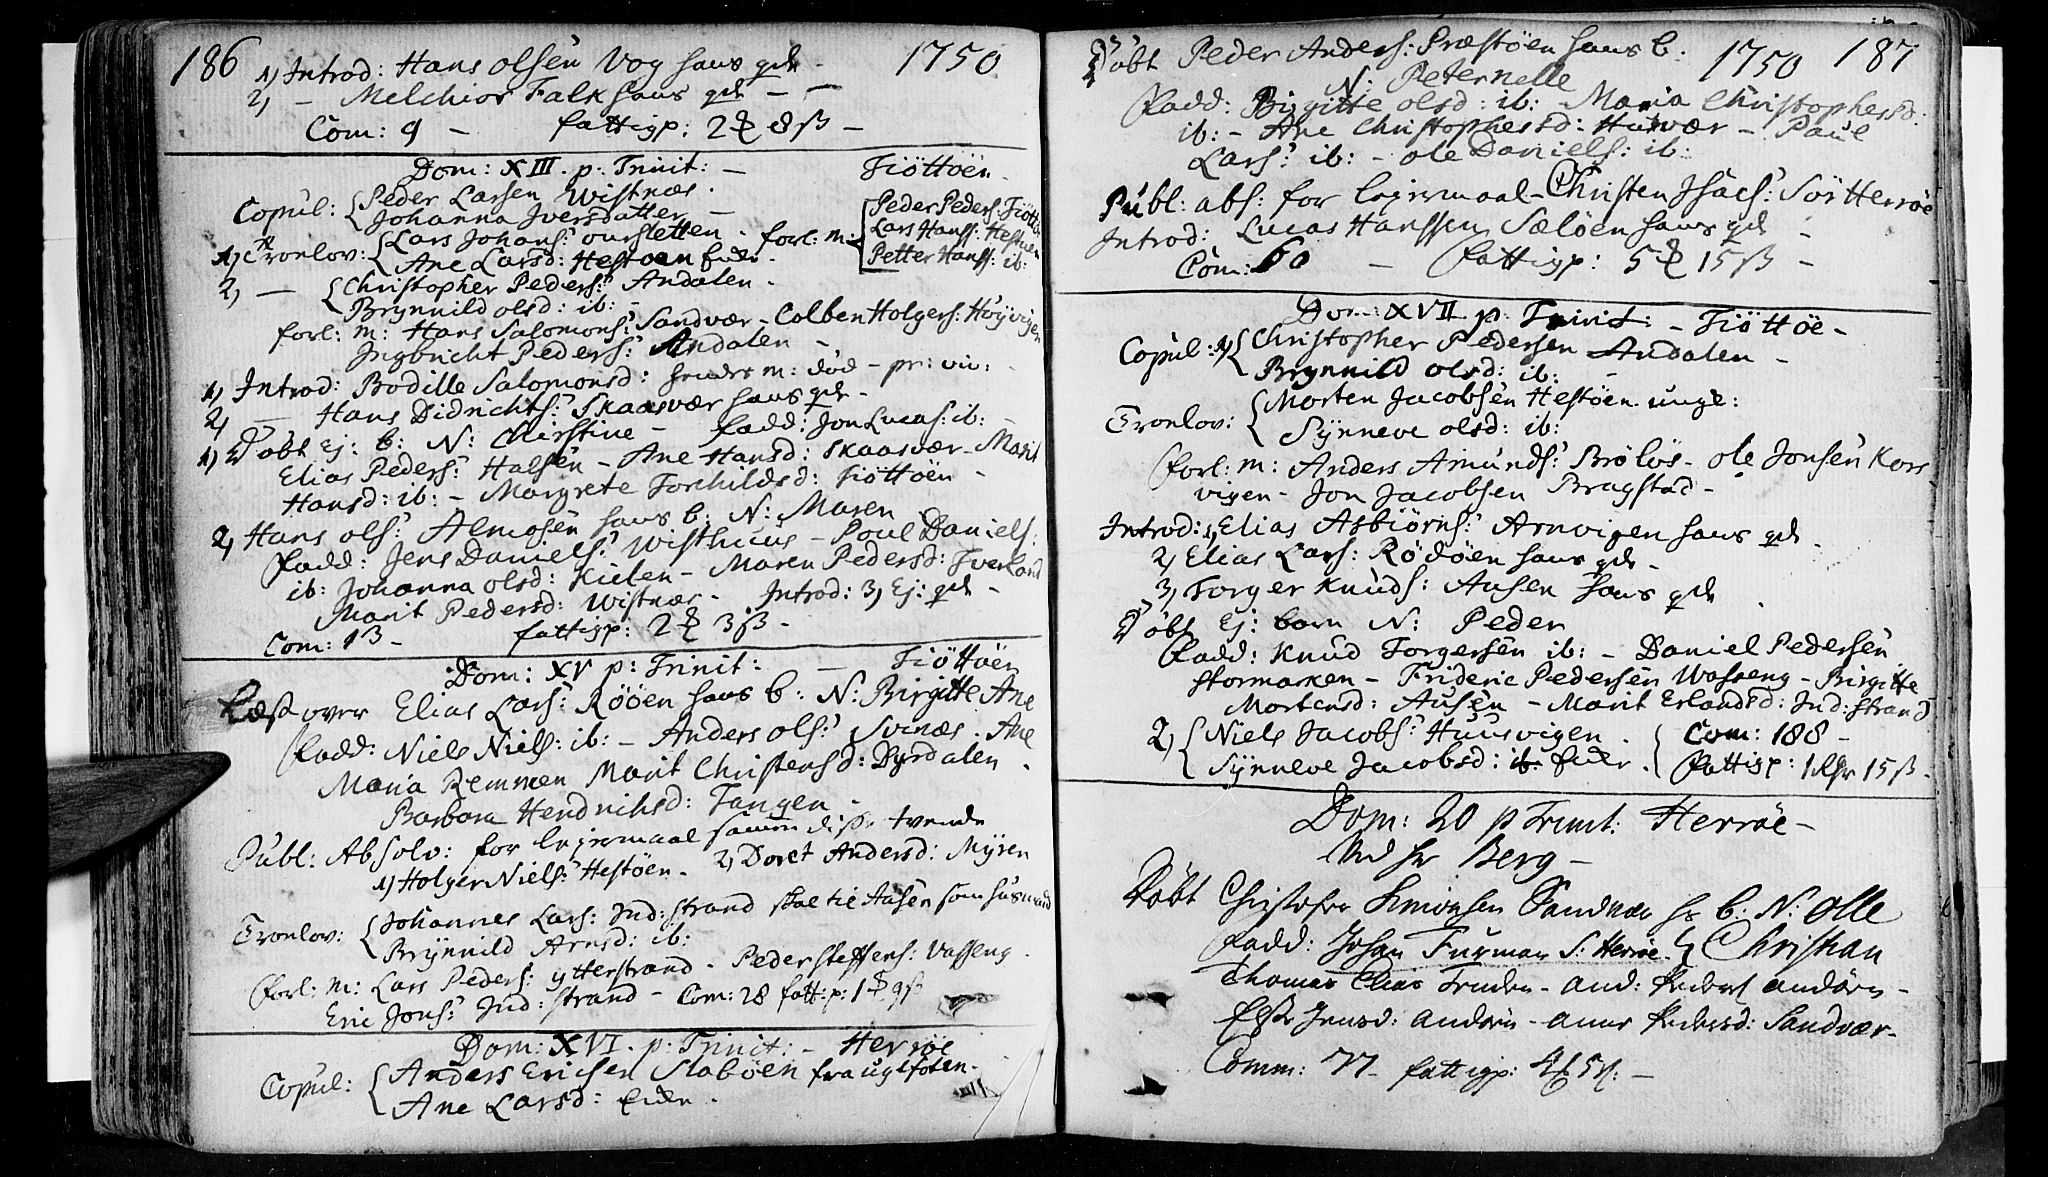 186
1750
1) Introd: Hans olsen Vog hans qde
2) — Melchior Falk hans qd — —
Com: 9 — fattigp: 2 ℔ 8 ß —
Dom: XIII. p. Trinit: — Tiøttøen
Copul: Peder Larsen Wistnæs.
Johanna Iversdatter —
1) Tronlov: Lars Johans: oursletten. forl: m: Peder Peders: Tiøttøen
Ane Larsd: Hestøen Lars Hans: Hestøen
Petter Hans: ib:
2) — Christopher Peders: Andalen.
Brynnild olsd: ib: —
forl: m: Hans Salomons: Sandvær — Colben Holgers: Høyvigen
Ingbricht Peders: Andalen —
1) Introd: Bodille Salomonsd: hendes m: død — pr: viv:
2) — Hans Didrichs: Skaasvær hans qde —
1) Døbt Ej: b: N: Christine — fadd: Jon Lucas: ib: —
Elias Peders: Halsen — Ane Hansd: Skaasvær — Marit
Hansd: ib: — Margrete Torchildsd: Tiøttøen —
2) Hans ols: Almosen hans b: N: Maren
Fadd: Jens Daniels: Wisthuus — Poul Daniels:
ib: Johanna olsd: Kielen — Maren Pedersd: Tverland
Marit Pedersd: Wistnær — Introd: 3) Ej: qde —
Com: 13 — fattigp: 2 ℔ 3 ß —
Dom: XV p: Trinit: — Tiøttøen
Læst over Elias Lars: Røøen hans b: N: Birgitte Ane
Fadd: Niels Niels: ib: — Anders ols: Svinæs. Ane
Maria Remmen Marit Christensd: Dyrdalen.
Barbara Hendrichsd: Tangen —
Publ: Absolv: for lejermaal samme disse tvende
1) Holger Niels: Hestøen. 2) Doret Andersd: Myren
Tronlov: Johannes Lars: Ind: strand skal til Ausen som huusmand
Brynnild Arnsd: ib:
forl: m: Lars Peders: ytterstrand — Peder steffens: Vasseng.
Eric Jons: Ind: strand — Com: 28 fatt:p: 1 ℔ 9 ß
Dom: XVI. p: Trinit: — Herrøe
Copul: Anders Erichsen Slabøen fra ugsfoten.
Ane Larsd:
1750 187
Døbt Peder Anders: Præstøen hans b.
N: Peternelle
Fadd: Birgitte olsd: ib: — Maria Christophersd:
ib: — Ane Christophersd: Husvær — Paul
Lars: ib: — ole Daniels: ib:
Publ: abs: for lejermaal — Christen Isacs: Sør Herrøe
Introd: Lucas Hanssen Sæløen hans qde —
Com: 60 — Fattigp: 5 ℔ 15 ß —
Dom: XVII p: Trinit: — Tiøttøe —
Copul: 1) Christopher Pedersen Andalen —
Brynnild olsd: ib:
Tronlov: Morten Jacobsen Hestøen unge:
Synneve olsd: ib:
forl: m: Anders Amunds: Brøløs — ole Jonsen Kors
vigen — Jon Jacobsen Bragstad —
Introd: 1) Elias Asbiørns: Arnvigen hans qde —
2) Elias Lars: Rødøen hans qde —
3) Torger Knuds: Ausen hans qde.
Døbt Ej: barn N: Peder
Fadd: Knud Torgersen ib: — Daniel Pedersen
stormarken — Frideric Pedersen Wasseng — Birgitte
Mortensd: Ausen — Marit Erlandsd: Ind: strand
2) Niels Jacobs: Huusvigen. Com: 188 —
Synneve Jacobsd: ib: Fattigp: 1 Rdr 15 ß.
Dom: 20 p Trinit: Herrøe —
Ved Hr Berg —
Døbt Christofer Simonsen Sandvær hs b: N: Olle
Christian
Fadd: Johan Furman S: Herrøe.
Thomas Elias Truden — And: Peders andøen —
Else Jensd: andøen — anne Pedersd: Sandvær —
Comm: 77 — fattigp: 4 ℔ 5 ß: —